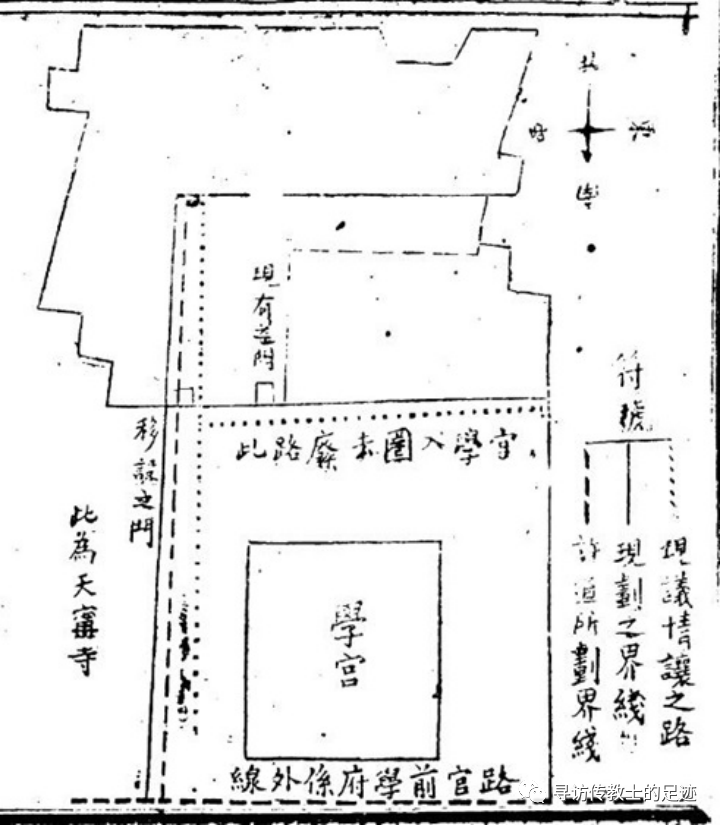 北
現有門
符號
此路廢未圈入學宮
移設之門
此為天寗寺
現議情讓之路
現劃之界綫
許道所劃界綫
學宮
線外係府學前官路
寻访传教士的足迹